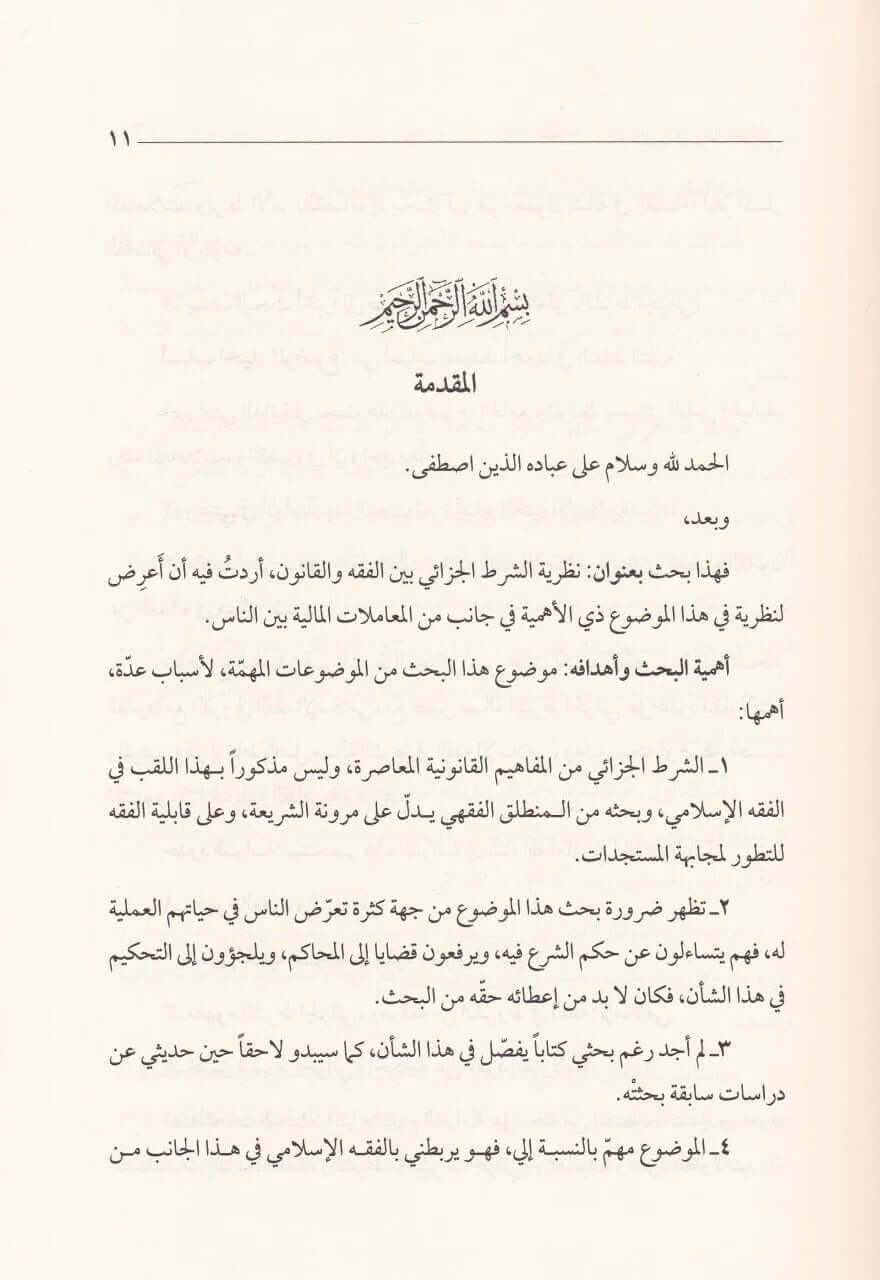 ١١
بسم الله الرحمن الرحيم
المقدمة
الحمد لله وسلام على عباده الذين اصطفى.
وبعد،
فهذا بحث بعنوان: نظرية الشرط الجزائي بين الفقه والقانون، أردتُ فيه أن أَعرِض
لنظرية في هذا الموضوع ذي الأهمية في جانب من المعاملات المالية بين الناس.
أهمية البحث وأهدافه: موضوع هذا البحث من الموضوعات المهمّة، لأسباب عدّة،
أهمها:
١ـ الشرط الجزائي من المفاهيم القانونية المعاصرة، وليس مذكوراً بهذا اللقب في
الفقه الإسلامي، وبحثه من المنطلق الفقهي يدلّ على مرونة الشريعة، وعلى قابلية الفقه
للتطور لمجابهة المستجدات.
٢ـ تظهر ضرورة بحث هذا الموضوع من جهة كثرة تعرّض الناس في حياتهم العملية
له، فهم يتساءلون عن حكم الشرع فيه، ويرفعون قضايا إلى المحاكم، ويلجؤون إلى التحكيم
في هذا الشأن، فكان لا بد من إعطائه حقّه من البحث.
٣ـ لم أجد رغم بحثي كتاباً يفصّل في هذا الشأن، كما سيبدو لاحقاً حين حديثي عن
دراسات سابقة بحثتْه.
٤ـ الموضوع مهمّ بالنسبة إلي، فهو يربطني بالفقه الإسلامي في هذا الجانب من